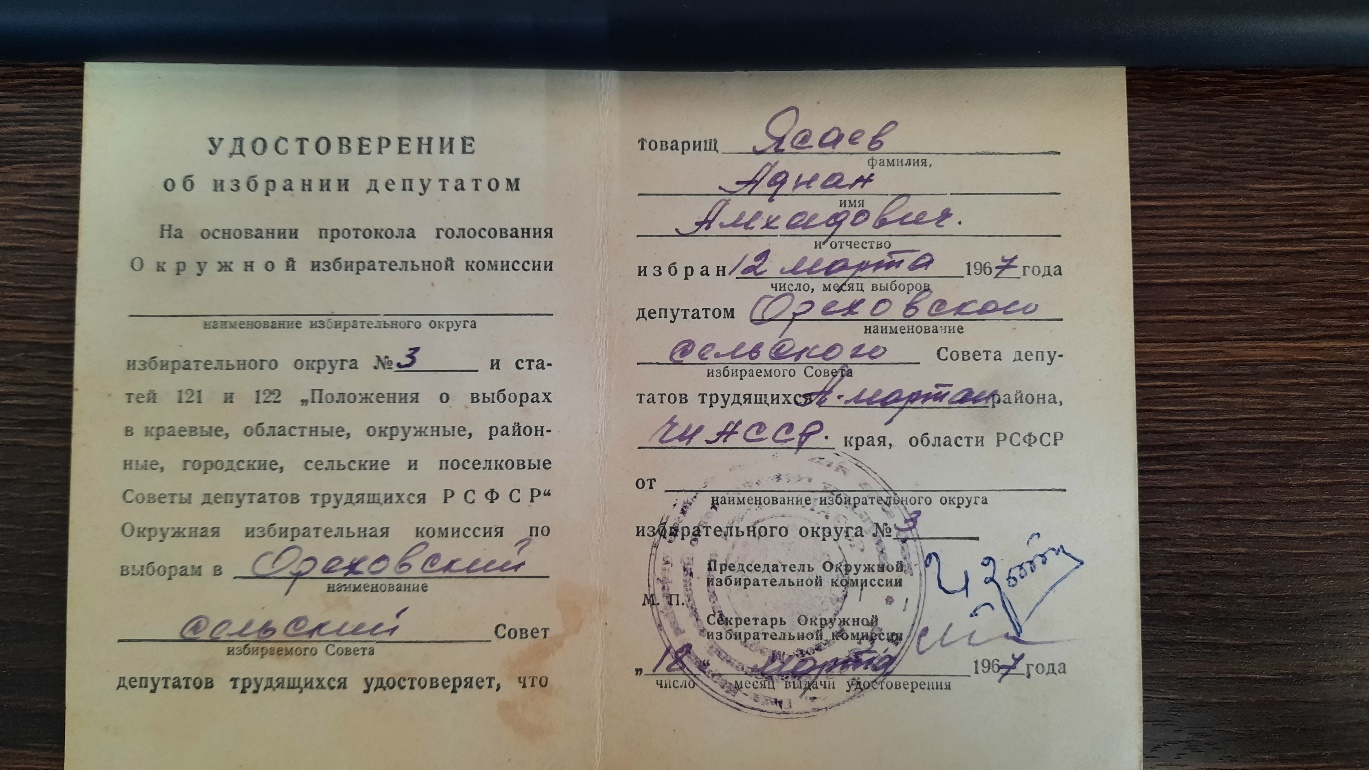 УДОСТОВЕРЕНИЕ
об избрании депутатом
На основании протокола голосования
Окружной избирательной комиссии
наименование избирательного округа
избирательного округа № 3 и ста-
тей 121 и 122 „Положения о выборах
в краевые, областные, окружные, район-
ные, городские, сельские и поселковые
Советы депутатов трудящихся РСФСР“
Окружная избирательная комиссия по
выборам в Ореховский
наименование
сельский Совет
избираемого Совета
депутатов трудящихся удостоверяет, что
товарищ Ясаев
фамилия,
Аднан
имя
Амхадович.
и отчество
избран 12 марта 1967 года
число, месяц выборов
депутатом Ореховского
наименование
сельского Совета депу-
избираемого Совета
татов трудящихся А-мартан района,
ЧИАССР. края, области РСФСР
от
наименование избирательного округа
избирательного округа № 3
Председатель Окружной
избирательной комиссии
М. П.
Секретарь Окружной
избирательной комиссии
„ марта 1967 года
число месяц выдачи удостоверения